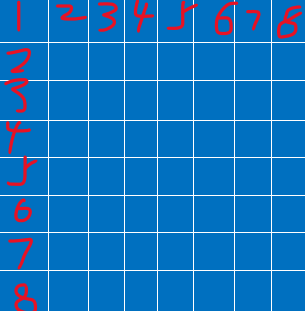 1 2 3 4 5 6 7 8
2
3
4
5
6
7
8